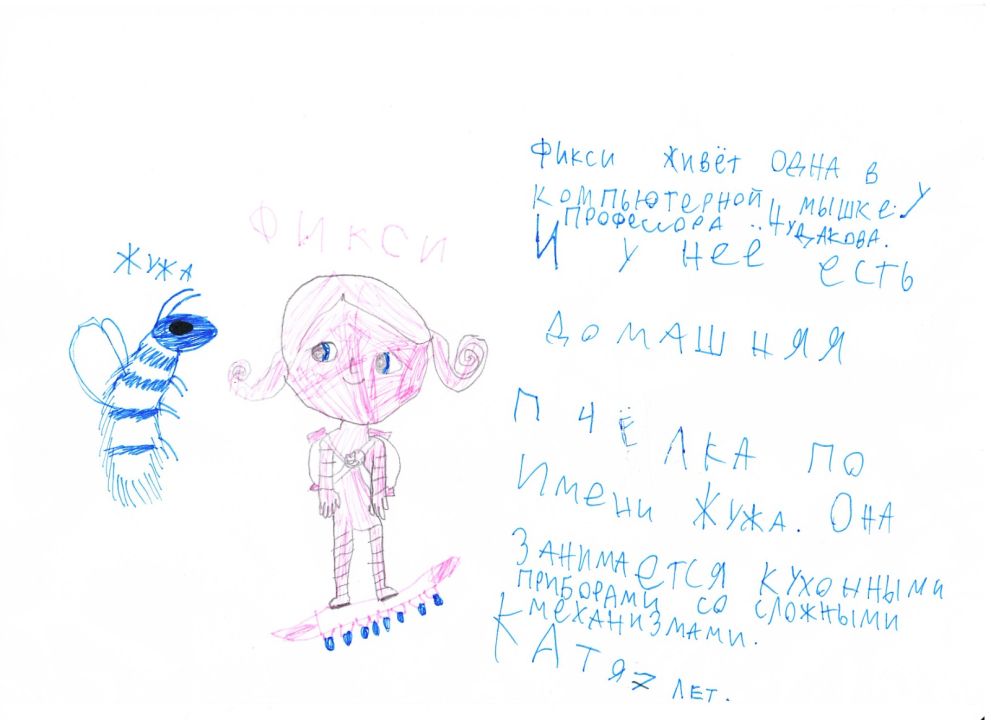 ЖУЖА
ФИКСИ
Фикси живёт одна в
компьютерной мышке у
профессора Чудакова.
И у неё есть
домашняя
пчёлка по
имени Жужа. Она
занимается кухонными
приборами со сложными
механизмами.
Катя 7 лет.